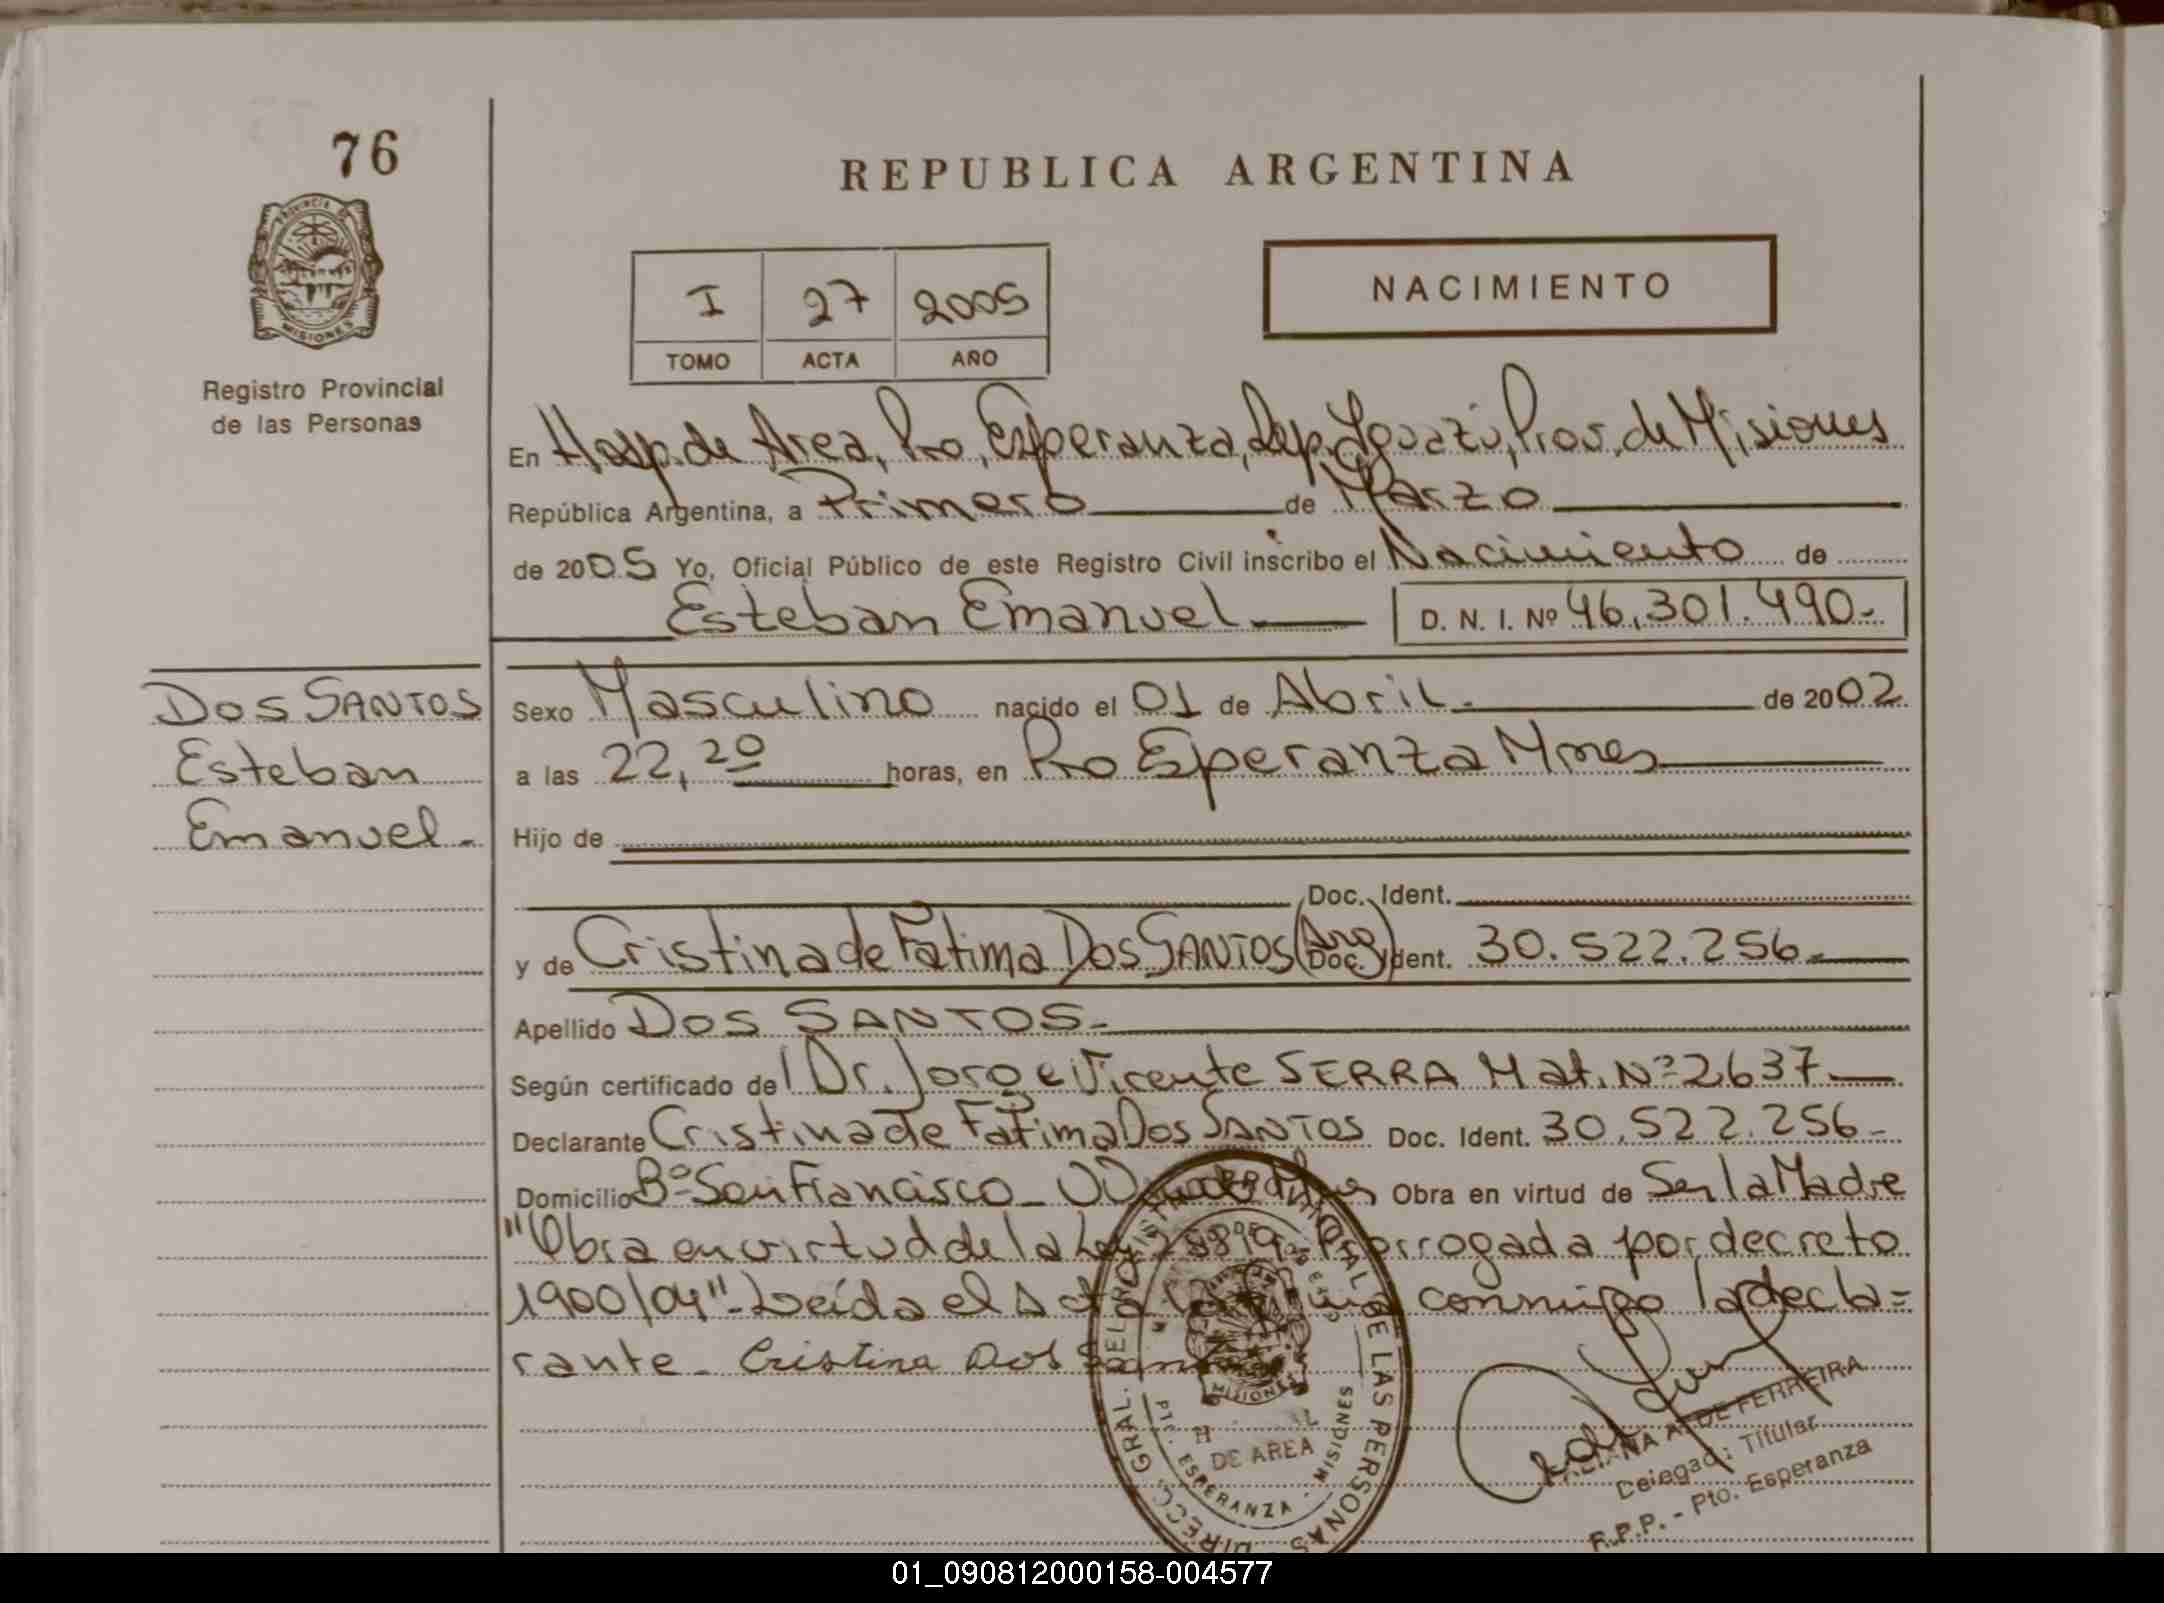 76
REPUBLICA ARGENTINA
PROVINCIA DE
MISIONES
Registro Provincial
de las Personas
I 27 2005
TOMO ACTA AÑO
NACIMIENTO
En Hosp. de Area, Pto, Esperanza, Dep. Iguazú, Prov. de Misiones
República Argentina, a Primero de Marzo
de 2005 Yo, Oficial Público de este Registro Civil inscribo el Nacimiento de
Esteban Emanuel D. N. I. Nº 46.301.490.-
Dos SANTOS
Esteban
Emanuel.-
Sexo Masculino nacido el 01 de Abril.- de 2002.
a las 22,20 horas, en Pto Esperanza Mnes
Hijo de
Doc. Ident.
y de Cristina de Fatima Dos SANTOS (Arg) Doc. Ident. 30.522.256.-
Apellido DOS SANTOS.-
Según certificado del Dr. Jorge Vicente SERRA Mat. Nº 2637.-
Declarante Cristina De Fatima Dos SANTOS Doc. Ident. 30.522.256-
Domicilio Bº San Francisco Obra en virtud de Ser la Madre
"Obra en virtud de la Ley Prorrogada por decreto
1900/04".- Leída el Acta conmigo la decla=
rante.- Cristina Dos Santos
DIRECC. GRAL. DEL REGISTRO PROVINCIAL DE LAS PERSONAS
MISIONES
DE AREA
PTO. ESPERANZA - MISIONES
A. DE FERREIRA
Delegada Titular
R.P.P. - Pto. Esperanza
01_090812000158-004577